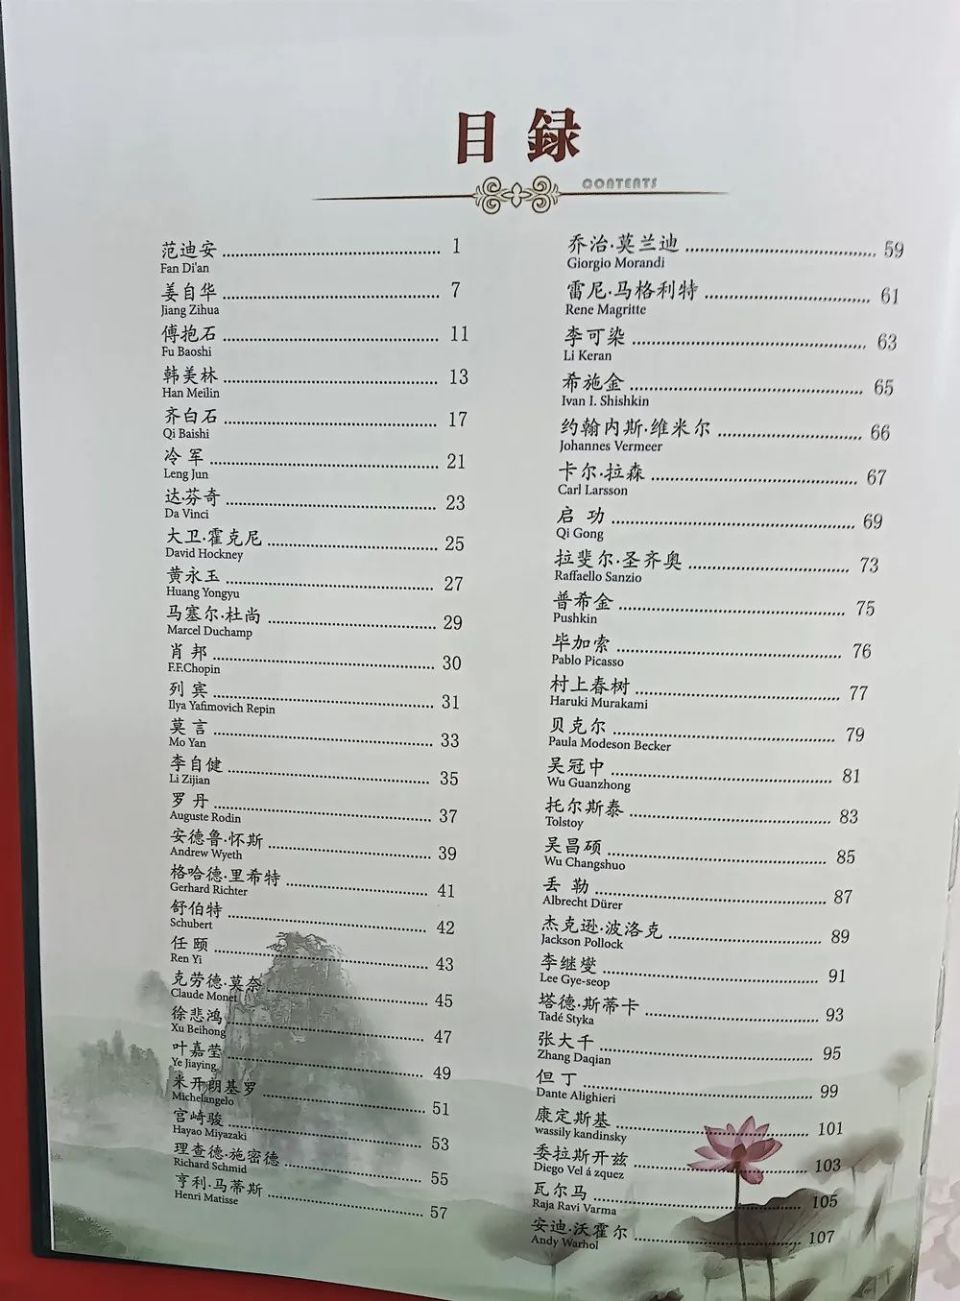 目録
CONTENTS
范迪安 1
Fan Di'an
姜自华 7
Jiang Zihua
傅抱石 11
Fu Baoshi
韩美林 13
Han Meilin
齐白石 17
Qi Baishi
冷军 21
Leng Jun
达·芬奇 23
Da Vinci
大卫·霍克尼 25
David Hockney
黄永玉 27
Huang Yongyu
马塞尔·杜尚 29
Marcel Duchamp
肖邦 30
F.F.Chopin
列宾 31
Ilya Yafimovich Repin
莫言 33
Mo Yan
李自健 35
Li Zijian
罗丹 37
Auguste Rodin
安德鲁·怀斯 39
Andrew Wyeth
格哈德·里希特 41
Gerhard Richter
舒伯特 42
Schubert
任颐 43
Ren Yi
克劳德·莫奈 45
Claude Monet
徐悲鸿 47
Xu Beihong
叶嘉莹 49
Ye Jiaying
米开朗基罗 51
Michelangelo
宫崎骏 53
Hayao Miyazaki
理查德·施密德 55
Richard Schmid
亨利·马蒂斯 57
Henri Matisse
乔治·莫兰迪 59
Giorgio Morandi
雷尼·马格利特 61
Rene Magritte
李可染 63
Li Keran
希施金 65
Ivan I. Shishkin
约翰内斯·维米尔 66
Johannes Vermeer
卡尔·拉森 67
Carl Larsson
启功 69
Qi Gong
拉斐尔·圣齐奥 73
Raffaello Sanzio
普希金 75
Pushkin
毕加索 76
Pablo Picasso
村上春树 77
Haruki Murakami
贝克尔 79
Paula Modeson Becker
吴冠中 81
Wu Guanzhong
托尔斯泰 83
Tolstoy
吴昌硕 85
Wu Changshuo
丢勒 87
Albrecht Dürer
杰克逊·波洛克 89
Jackson Pollock
李继燮 91
Lee Gye-seop
塔德·斯蒂卡 93
Tadé Styka
张大千 95
Zhang Daqian
但丁 99
Dante Alighieri
康定斯基 101
wassily kandinsky
委拉斯开兹 103
Diego Vel á zquez
瓦尔马 105
Raja Ravi Varma
安迪·沃霍尔 107
Andy Warhol